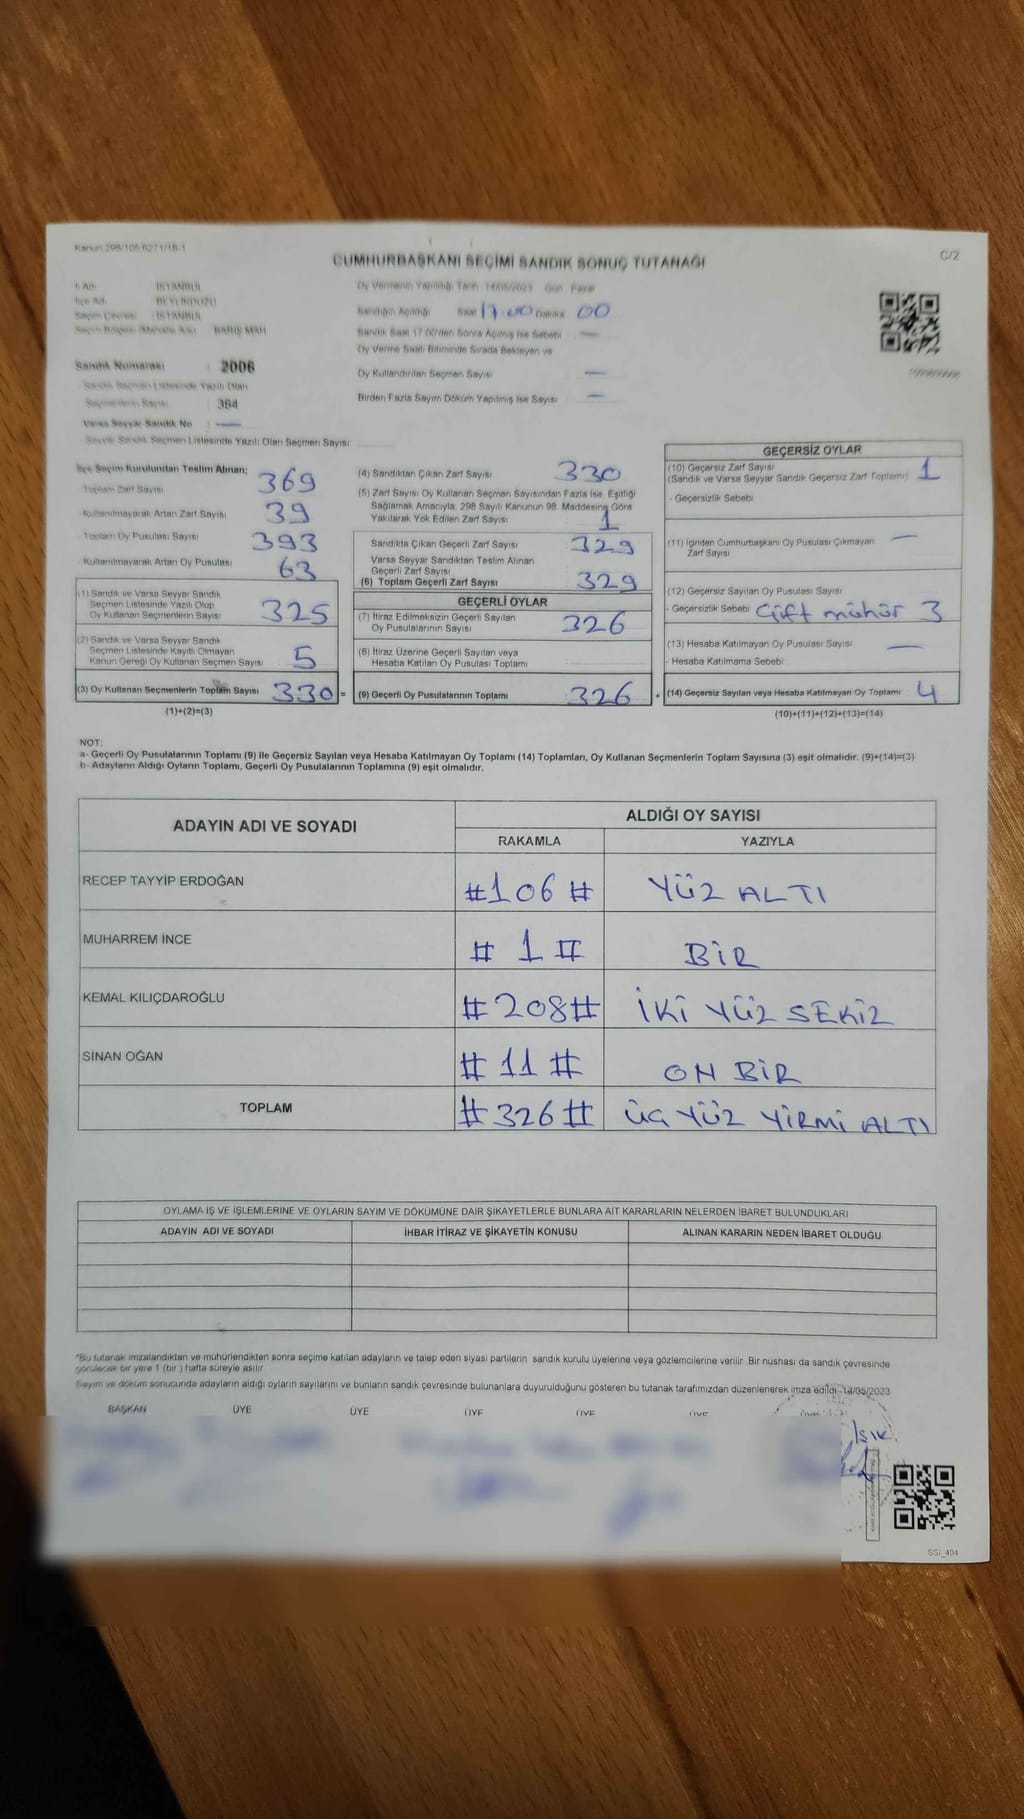 Kanun 298/105 6271/18-1
C/2
CUMHURBAŞKANI SEÇİMİ SANDIK SONUÇ TUTANAĞI
İl Adı : İSTANBUL
İlçe Adı : BEYLİKDÜZÜ
Seçim Çevresi : İSTANBUL
Seçim Bölgesi (Mahalle Adı) : BARIŞ MAH
Oy Vermenin Yapıldığı Tarih 14/05/2023 Gün Pazar
Sandığın Açıldığı Saat 17.00 Dakika 00
Sandık Saat 17.00'den Sonra Açılmış İse Sebebi —
Oy Verme Saati Bitiminde Sırada Bekleyen ve
Oy Kullandırılan Seçmen Sayısı —
Birden Fazla Sayım Döküm Yapılmış İse Sayısı —
Sandık Numarası : 2006
Sandık Seçmen Listesinde Yazılı Olan
Seçmenlerin Sayısı : 364
Varsa Seyyar Sandık No : —
Seyyar Sandık Seçmen Listesinde Yazılı Olan Seçmen Sayısı
İlçe Seçim Kurulundan Teslim Alınan;
Toplam Zarf Sayısı 369
Kullanılmayarak Artan Zarf Sayısı 39
Toplam Oy Pusulası Sayısı 393
Kullanılmayarak Artan Oy Pusulası 63
(1) Sandık ve Varsa Seyyar Sandık
Seçmen Listesinde Yazılı Olup
Oy Kullanan Seçmenlerin Sayısı 325
(2) Sandık ve Varsa Seyyar Sandık
Seçmen Listesinde Kayıtlı Olmayan
Kanun Gereği Oy Kullanan Seçmen Sayısı 5
(3) Oy Kullanan Seçmenlerin Toplam Sayısı 330 =
(1)+(2)=(3)
(4) Sandıktan Çıkan Zarf Sayısı 330
(5) Zarf Sayısı Oy Kullanan Seçmen Sayısından Fazla İse, Eşitliği
Sağlamak Amacıyla, 298 Sayılı Kanunun 98. Maddesine Göre
Yakılarak Yok Edilen Zarf Sayısı 1
Sandıkta Çıkan Geçerli Zarf Sayısı 329
Varsa Seyyar Sandıktan Teslim Alınan
Geçerli Zarf Sayısı
(6) Toplam Geçerli Zarf Sayısı 329
GEÇERLİ OYLAR
(7) İtiraz Edilmeksizin Geçerli Sayılan
Oy Pusulalarının Sayısı 326
(8) İtiraz Üzerine Geçerli Sayılan veya
Hesaba Katılan Oy Pusulası Toplamı
(9) Geçerli Oy Pusulalarının Toplamı 326 +
GEÇERSİZ OYLAR
(10) Geçersiz Zarf Sayısı 1
(Sandık ve Varsa Seyyar Sandık Geçersiz Zarf Toplamı)
- Geçersizlik Sebebi
(11) İçinden Cumhurbaşkanı Oy Pusulası Çıkmayan —
Zarf Sayısı
(12) Geçersiz Sayılan Oy Pusulası Sayısı
- Geçersizlik Sebebi Çift mühür 3
(13) Hesaba Katılmayan Oy Pusulası Sayısı —
- Hesaba Katılmama Sebebi
(14) Geçersiz Sayılan veya Hesaba Katılmayan Oy Toplamı 4
(10)+(11)+(12)+(13)=(14)
NOT:
a- Geçerli Oy Pusulalarının Toplamı (9) ile Geçersiz Sayılan veya Hesaba Katılmayan Oy Toplamı (14) Toplamları, Oy Kullanan Seçmenlerin Toplam Sayısına (3) eşit olmalıdır. (9)+(14)=(3)
b- Adayların Aldığı Oyların Toplamı, Geçerli Oy Pusulalarının Toplamına (9) eşit olmalıdır.
ADAYIN ADI VE SOYADI ALDIĞI OY SAYISI
RAKAMLA YAZIYLA
RECEP TAYYİP ERDOĞAN #106# YÜZ ALTI
MUHARREM İNCE #1# BİR
KEMAL KILIÇDAROĞLU #208# İKİ YÜZ SEKİZ
SİNAN OĞAN #11# ON BİR
TOPLAM #326# ÜÇ YÜZ YİRMİ ALTI
OYLAMA İŞ VE İŞLEMLERİNE VE OYLARIN SAYIM VE DÖKÜMÜNE DAİR ŞİKAYETLERLE BUNLARA AİT KARARLARIN NELERDEN İBARET BULUNDUKLARI
ADAYIN ADI VE SOYADI İHBAR İTİRAZ VE ŞİKAYETİN KONUSU ALINAN KARARIN NEDEN İBARET OLDUĞU
*Bu tutanak imzalandıktan ve mühürlendikten sonra seçime katılan adayların ve talep eden siyasi partilerin sandık kurulu üyelerine veya gözlemcilerine verilir. Bir nüshası da sandık çevresinde
görülecek bir yere 1 (bir ) hafta süreyle asılır
Sayım ve döküm sonucunda adayların aldığı oyların sayılarını ve bunların sandık çevresinde bulunanlara duyurulduğunu gösteren bu tutanak tarafımızdan düzenlenerek imza edildi. 14/05/2023
BAŞKAN ÜYE ÜYE ÜYE ÜYE ÜYE ÜYE
Işık
SSI_404